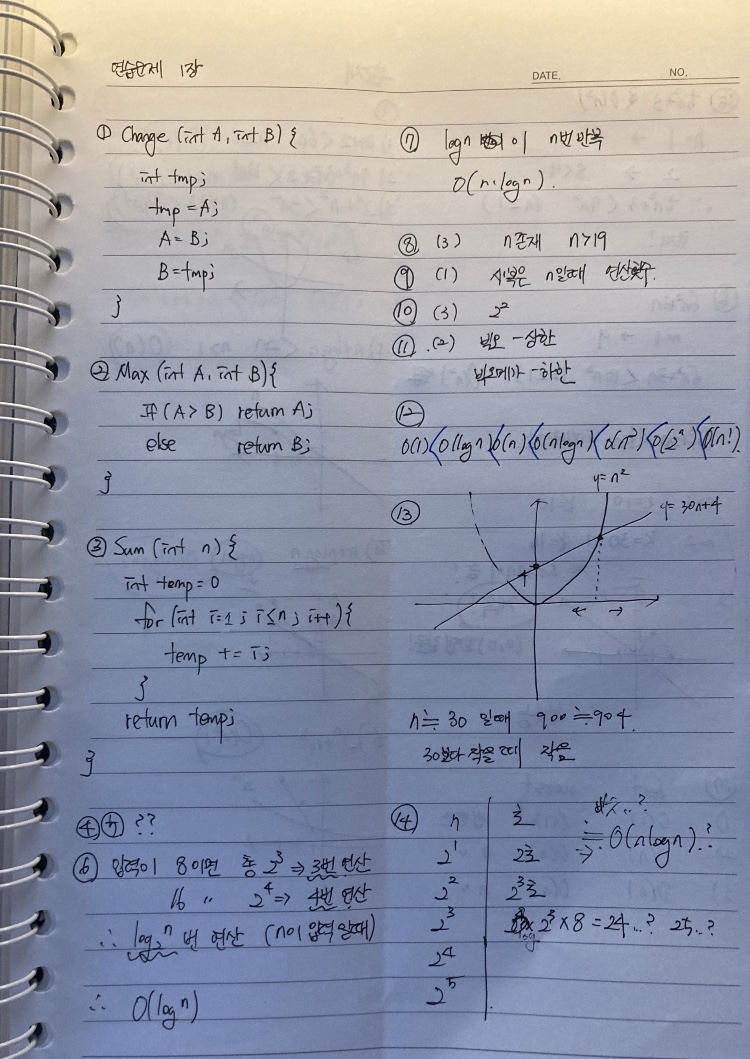 연습문제 1장
DATE. NO.
① Change (int A, int B) {
int tmp;
tmp = A;
A = B;
B = tmp;
}
② Max (int A, int B) {
if (A > B) return A;
else return B;
}
③ Sum (int n) {
int temp = 0
for (int i=1; i≤n; i++) {
temp += i;
}
return temp;
}
④ ⑤ ??
⑥ 입력이 8이면 총 2³ ⇒ 3번 연산
16 〃 2⁴ ⇒ 4번 연산
∴ log₂ⁿ 번 연산 (n이 입력일때)
∴ O(logⁿ)
⑦ logn 이 n번 반복
O(n·logn).
⑧ (3) n존재 n>19
⑨ (1) n일때
⑩ (3) 2²
⑪ (2) 빅오 - 상한
빅오메가 - 하한
⑫
O(1) < O(logn) < O(n) < O(nlogn) < O(n²) < O(2ⁿ) < O(n!).
⑬
y=n²
y=30n+4
4
← →
n≒30 일때 900≒904.
30보다 작을 때 작음
⑭ n 초
2¹ 2초
2² 2³초
2³ 2³×8 = 24..? 25..?
2⁴
2⁵
..?
≒ O(nlogn).?
→